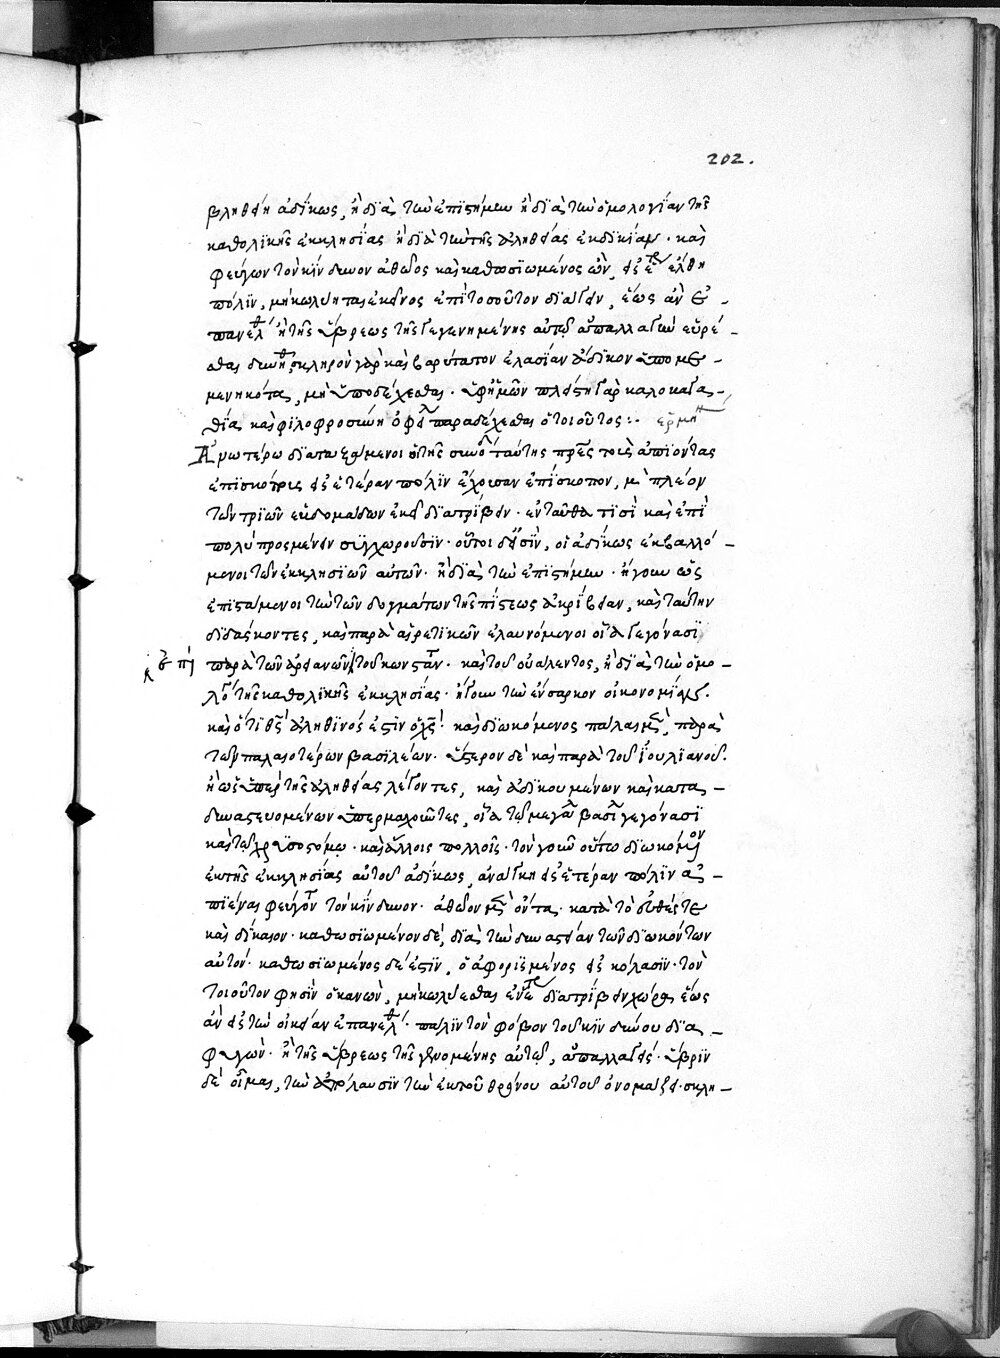 202.
βληθείη ἀδίκως, ἢ διὰ τὴν ἐπιστήμην ἢ διὰ τὴν ὁμολογίαν τῆς
καθολικῆς ἐκκλησίας ἢ διὰ τὴν τῆς ἀληθείας ἐκδικίαν· καὶ
φεύγων τὸν κίνδυνον ἀθῶος καὶ καθωσιωμένος ὢν, εἰς ἑτέραν ἔλθη
πόλιν, μὴ κωλυέτω ἐκεῖνος ἐπὶ τοσοῦτον διάγειν, ἕως ἂν ἐ-
πανέλθῃ ἢ τῆς ὕβρεως τῆς γεγενημένης αὐτῷ ἀπαλλαγὴν εὑρέ-
σθαι δυνηθῇ σκληρὸν γὰρ καὶ βαρύτατον ἐλασίαν ἄδικον ὑπομε-
μενηκότα, μὴ ὑποδέχεσθαι· ὑφ' ἡμῶν πλείστῃ γὰρ καλοκαγα-
θίᾳ καὶ φιλοφροσύνη ὀφείλει παραδέχεσθαι ὁ τοιοῦτος:· ἑρμη
Ἀνωτέρω διαταξάμενοι οἱ τῆς συνόδου ταύτης πρὸς τοὺς ἀπιόντας
ἐπισκόπους εἰς ἑτέραν πόλιν ἔχουσαν ἐπίσκοπον, μὴ πλέον
τῶν τριῶν ἑβδομάδων ἐκεῖ διατρίβειν· ἐνταῦθα τισὶ καὶ ἐπὶ
πολὺ προσμένειν συγχωροῦσιν· οὗτοι δέ εἰσιν, οἱ ἀδίκως ἐκβαλλό-
μενοι τῶν ἐκκλησιῶν αὐτῶν· ἢ διὰ τὴν ἐπιστήμην· ἤγουν ὡς
ἐπιστάμενοι τὴν τῶν δογμάτων τῆς πίστεως ἀκρίβειαν, καὶ ταύτην
διδάσκοντες, καὶ παρὰ αἱρετικῶν ἐλαυνόμενοι οἷα γεγόνασι
ἐπὶ παρὰ τῶν ἀρειανῶν τοῦ κωνσταντίου· καὶ τοῦ οὐάλεντος, ἢ διὰ τὴν ὁμο-
λογίαν τῆς καθολικῆς ἐκκλησίας· ἤγουν τὴν ἔνσαρκον οἰκονομίαν.
καὶ ὅτι θεὸς ἀληθινός ἐστιν ὁ χριστὸς· καὶ διωκόμενος πάλαι μὲν, παρὰ
τῶν παλαιοτέρων βασιλέων· ὕστερον δὲ καὶ παρὰ τοῦ ἰουλιανοῦ.
ἢ ὡς ὑπὲρ τῆς ἀληθείας λέγοντες, καὶ ἀδικουμένων καὶ κατα-
δυναστευομένων ὑπερμαχοῦντες, οἷα τῷ μεγάλῳ βασιλείῳ γεγόνασι
καὶ τῷ χρυσοστόμῳ· καὶ ἄλλοις πολλοῖς· τὸν γοῦν οὕτω διωκόμενον
ἐκ τῆς ἐκκλησίας αὐτοῦ ἀδίκως, ἀνάγκη εἰς ἑτέραν πόλιν ἀ-
πιέναι φεύγοντα τὸν κίνδυνον· ἀθῶον μὲν ὄντα· κατὰ τὸ
καὶ δίκαιον· καθωσιωμένον δέ, διὰ τὴν δυναστείαν τῶν διωκόντων
αὐτόν· καθωσιωμένος δέ ἐστιν, ὁ ἀφορισμένος εἰς κόλασιν· τὸν
τοιοῦτον φησὶν ὁ κανὼν, μὴ κωλύεσθαι ἐν διατρίβειν χώρᾳ ἕως
ἂν εἰς τὴν οἰκείαν ἐπανέλθῃ· πάλιν τὸν φόβον τοῦ κινδύνου δια-
φυγὼν· ἢ τῆς ὕβρεως τῆς γενομένης αὐτῷ, ἀπαλλαγείς· ὕβριν
δὲ οἶμαι, τὴν ἀπέλασιν τὴν ἐκ τοῦ θρόνου αὐτοῦ ὀνομάζει· σκλη-